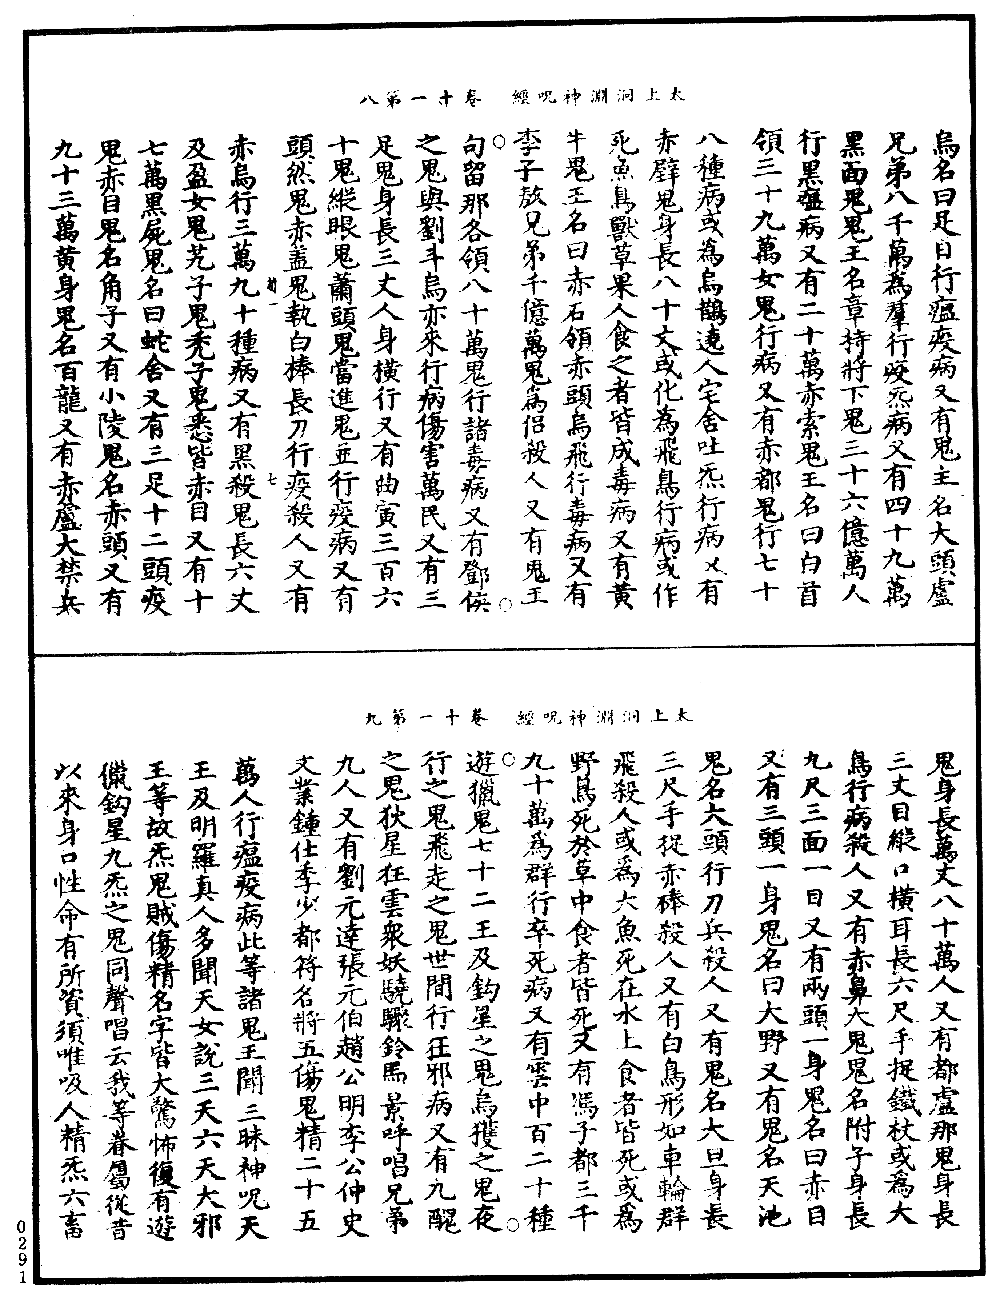 太上洞淵神呪經　卷十一第八
烏名曰足目行瘟疫病又有鬼主名大頭盧
兄弟八千萬為羣行咬炁病又有四十九萬
黑面鬼鬼王名章持將下鬼三十六億萬人
行黑瘟病又有二十萬赤索鬼王名曰白首
領三十九萬女鬼行病又有赤都鬼行七十
八種病或為烏鵲遶人宅舍吐炁行病又有
赤瘴鬼身長八十丈或化為飛鳥行病或作
死魚鳥獸草果人食之者皆成毒病又有黃
牛鬼王名曰赤石領赤頭烏飛行毒病又有
李子敖兄弟千億萬鬼為侶殺人又有鬼王
句留那各領八十萬鬼行諸毒病又有鄧侯
之鬼與劉斗烏亦來行病傷害萬民又有三
足鬼身長三丈人身橫行又有曲寅三百六
十鬼縱眼鬼蕭頭鬼當進鬼並行疫病又有
頭然鬼赤蓋鬼執白棒長刀行疫殺人又有
七
赤烏行三萬九十種病又有黑殺鬼長六丈
及盈女鬼艽子鬼禿子鬼悉皆赤目又有十
七萬黑屍鬼名曰蛇舍又有三足十二頭疫
鬼赤目鬼名角子又有小陵鬼名赤頭又有
九十三萬黄身鬼名百龍又有赤盧大禁兵
太上洞淵神呪經　卷十一第九
鬼身長萬丈八十萬人又有都盧那鬼身長
三丈目縱口橫耳長六尺手捉鐵杖或為大
鳥行病殺人又有赤鼻大鬼鬼名附子身長
九尺三面一目又有兩頭一身鬼名曰赤目
又有三頭一身鬼名曰大野又有鬼名天池
鬼名六頭行刀兵殺人又有鬼名大旦身長
三尺手捉赤棒殺人又有白鳥形如車輪群
飛殺人或爲大魚死在水上食者皆死或為
野鳥死於草中食者皆死又有馮子都三千
九十萬為群行卒死病又有雲中百二十種
遊獵鬼七十二王及鈎星之鬼烏獲之鬼夜
行之鬼飛走之鬼世間行狂邪病又有九醜
之鬼狄星狂雲衆妖驍騄鈴馬景呼唱兄弟
九人又有劉元達張元伯趙公明李公仲史
文業鍾仕季少都符名將五傷鬼精二十五
萬人行瘟疫病此等諸鬼王聞三昧神呪天
王及明羅真人多聞天女說三天六天大邪
王等故炁鬼賊傷精名字皆大驚怖復有遊
儠鈎星九炁之鬼同聲唱云我等眷屬從昔
以來身口性命有所資須唯吸人精炁六畜
0291